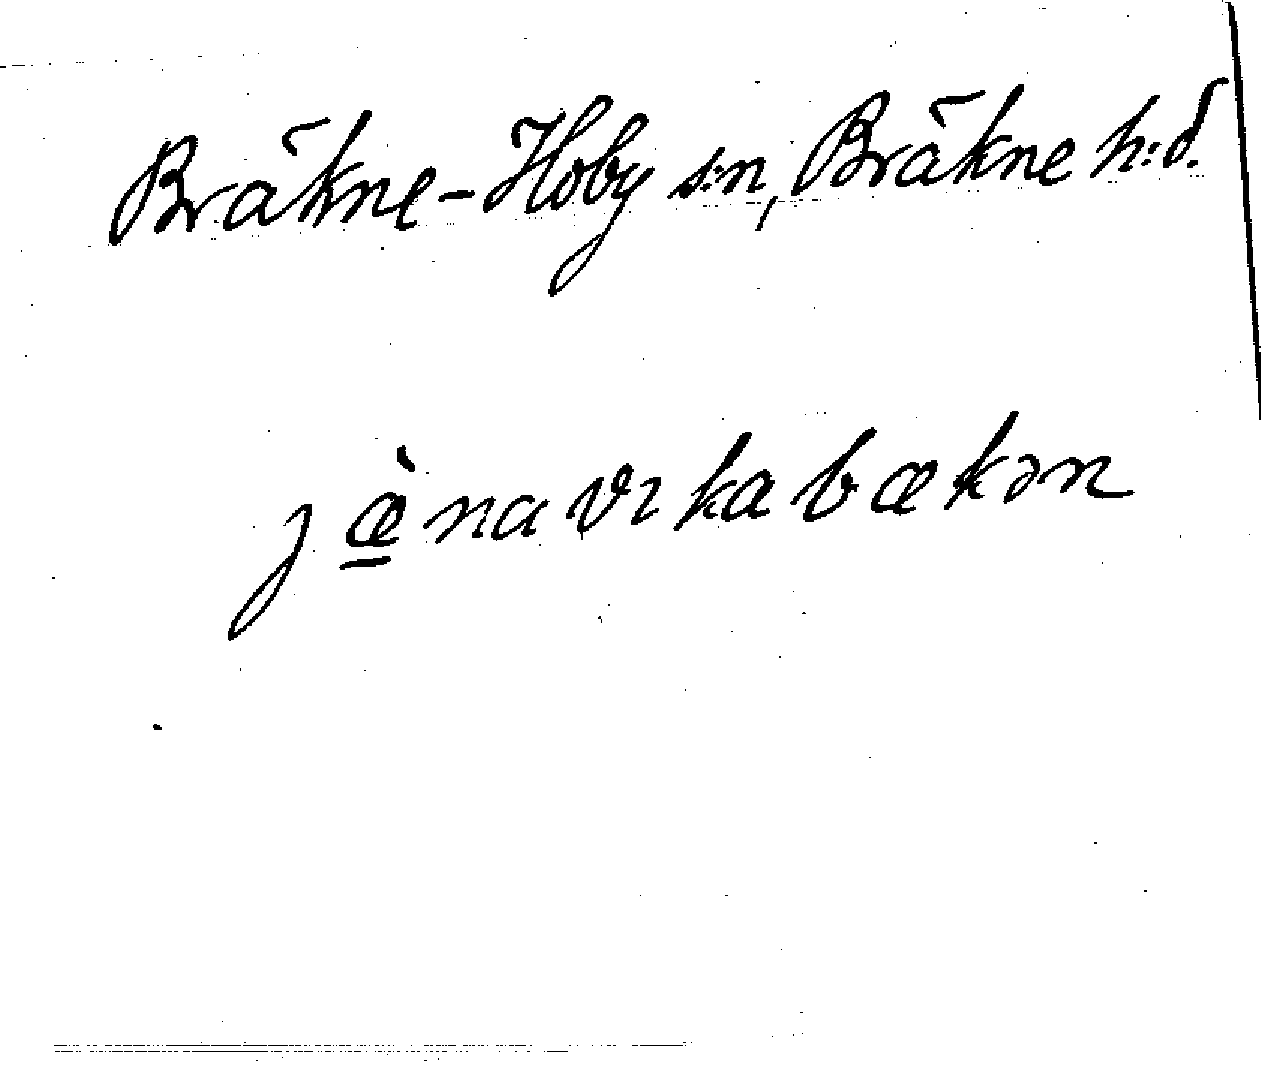 Bräkne-Hoby s:n, Bräkne h:d.
jæ̱̀navıkabækən